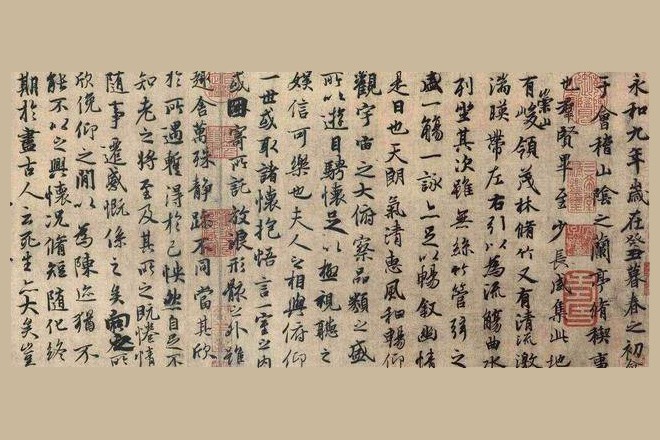 永和九年歲在癸丑暮春之初會
于會稽山陰之蘭亭脩稧事
也羣賢畢至少長咸集此地
有崇山峻領茂林脩竹又有清流激
湍暎帶左右引以為流觴曲水
列坐其次雖無絲竹管弦之
盛一觴一詠亦足以暢敘幽情
是日也天朗氣清惠風和暢仰
觀宇宙之大俯察品類之盛
所以遊目騁懷足以極視聽之
娛信可樂也夫人之相與俯仰
一世或取諸懷抱悟言一室之內
或因寄所託放浪形骸之外雖
趣舍萬殊靜躁不同當其欣
於所遇暫得於己怏然自足不
知老之將至及其所之既惓情
隨事遷感慨係之矣向之所
欣俛仰之閒以為陳迹猶不
能不以之興懷況脩短隨化終
期於盡古人云死生亦大矣豈